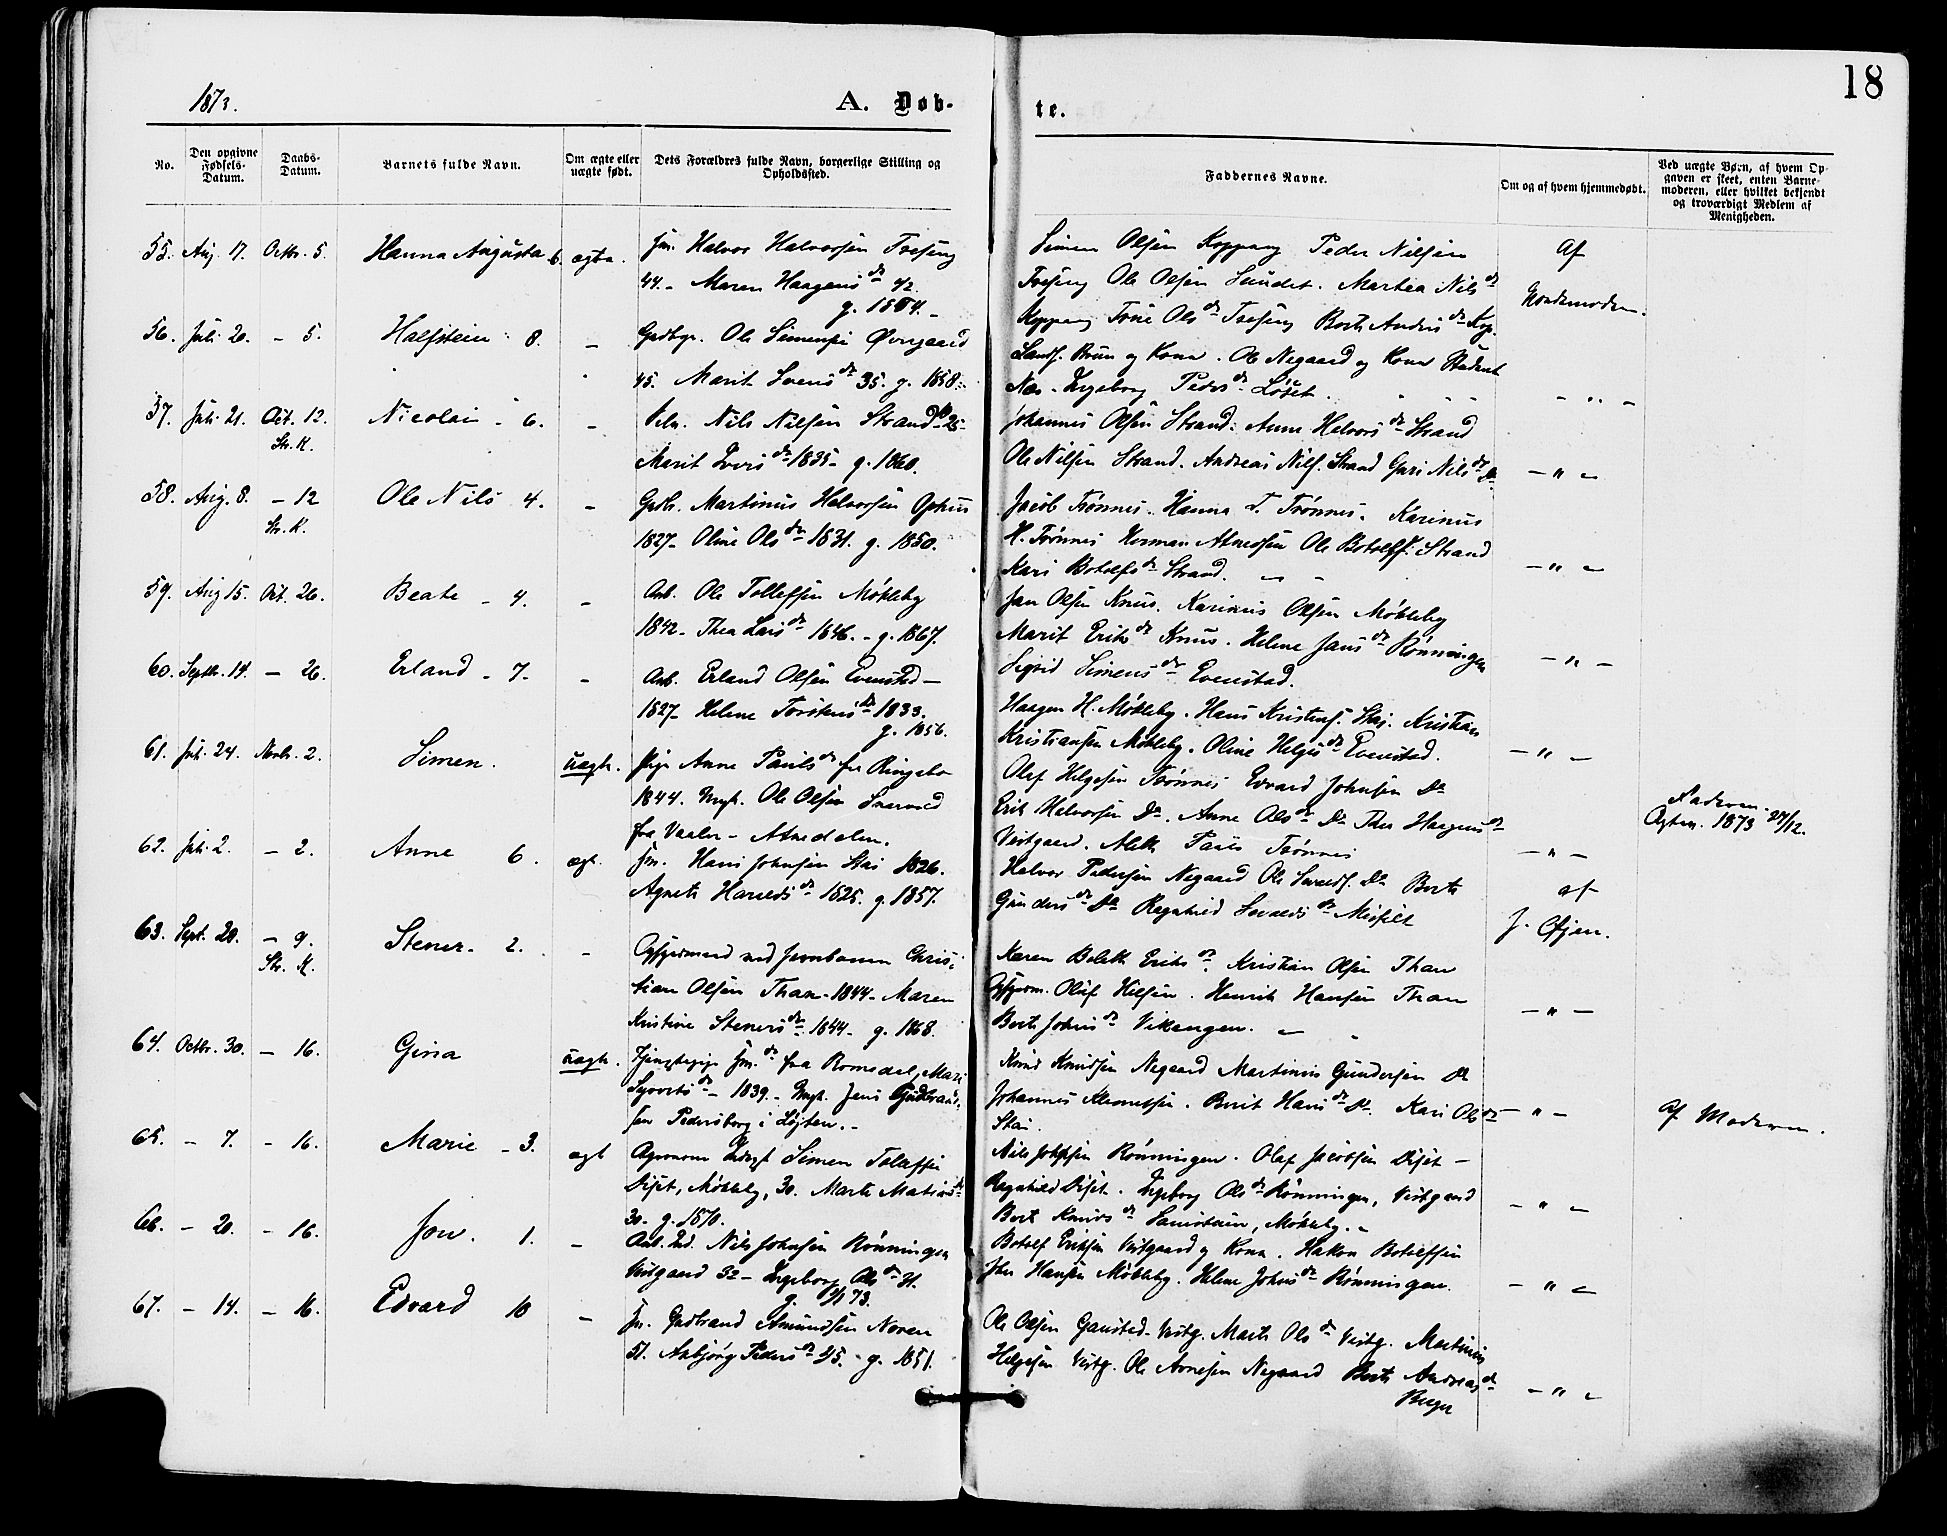 18
1873.
A. Døb-
te.
No.
Den opgivne Fødsels-Datum.
Daabs-Datum.
Barnets fulde Navn.
Om ægte eller uægte født.
Dets Forældres fulde Navn, borgerlige Stilling og Opholdssted.
Faddernes Navne.
Om og af hvem hjemmedøbt.
Ved uægte Børn, af hvem Opgaven er skeet, enten Barnemoderen, eller hvilket bekjendt og troværdigt Medlem af Menigheden.
55. Aug. 17. Octbr. 5. Hanna Augusta 6. ægte. Halvor Halvorsen
44. - Maren Haagens dr 42.
Simen Olsen Koppang Peder Nilsen
Ole Olsen Sundet. Marthea Nils dr
Af
56. Juli 20. - 5. Halfstein 8. - Grdbgr. Ole Simensen Øvergaard
45. Marit Svens dr 35. g. 1858.
Landh. Bruun og Kone. Ole Negaard og Kone
Ingeborg Peders dr Løset.
- " -
57. Juli 21. Oct. 12. Nicolai - 6. - Nils Nilsen Strand
Str. K.
Marit Ivers dr 1835 - g. 1860.
Johannes Olsen Strand. Anne Halvors dr Strand
Ole Nilsen Strand. Andreas Nils. Strand Guri Nils dr Do
- " -
58. Aug. 8. - 12 Ole Nils 4. - Martinus Halvorsen Ophus
Str. K.
1827 - Oline Ols dr 1831. g. 1850.
Jacob Trønnes. Hanna T. Trønnes. Karinus
H. Trønnes Herman Atnedsen Ole Botolfs. Strand
Kari Botolfs dr Strand.
- " -
59. Aug 15. Oct. 26. Beate - 4. - Arb. Ole Tollefsen Møkleby
1842 - Thea Lars dr 1846. - g. 1867.
Jan Olsen Knus. Karinus Olsen Møkleby
Marit Eriks dr Knus. Helene Jans dr Rønningen
Sigrid Simens dr Evenstad.
- " -
60. Septbr. 14. - 26. Erland - 7. - Arb. Erland Olsen Evensted -
1827 - Helene Torstens dr 1833.
g. 1856.
Haagen H. Møkleby. Hans Kristens. Stai. Kristian
Kristiansen Møkleby. Oline Helges dr Evenstad.
- " -
61. Juli 24. Novbr. 2. Simen. uægte. Pige Anne Pauls dr fra Ringebo
1844. Ungk. Ole Olsen
fra Vaaler - Atnedalen.
Olef Helgesen Trønnes Edvard Johnsen Do
Erik Halvorsen Do. Anne Ols dr Do Thea Haagens dr
Vestgaard. Aleth Pauls Trønnes
- " -
1873 27/12.
62. Juli 2. - 2. Anne 6. ægt. Hans Johnsen Stai 1826.
Agnete Haralds dr 1825. g. 1857.
Halvor Pedersen Negaard Ole Do Berte
Gunders dr Do Ragnhild
af
J. Øfjen.
63. Sept. 20. - 9. Stener. 2. - Opsynsmand ved Jernbanen Chris-
Str. K.
tian Olsen Than - 1844 - Maren
Kristine Steners dr 1844 - g. 1868.
Karen Beleth Eriks dr. Kristian Olsen Than
Opsynsm. Oluf Nilsen. Henrik Hansen Than
Berte Johns dr Vikengen.
- " -
64. Octbr. 30. - 16. Gina uægte. fra Romedal, Mari
Syverts dr - 1839. - Ungk. Jens Gudbrand-
sen Pedersborg i Løyten. -
Knud Knudsen Negaard Martinus Gundersen Do
Johannes Klemetsen. Berit Hans dr Do. Kari Ols dr
Stai.
- " -
Af Moderen.
65. - 7. - 16. Marie - 3. ægt Agronom Simen Tollefsen
Diset, Møkleby, 30. Marte Mathias dr
30. g. 1870.
Nils Johnsen Rønningen. Olaf Jacobsen Diset -
Ragnhild Diset. Ingeborg Ols dr Rønningen, Vestgaard
Berte Knuds dr Møkleby. -
- " -
66. - 20. - 16. Jon. 1. - Arb. Ind. Nils Johnsen Rønningen
Vestgaard 32 - Ingeborg Ols dr 31.
Botolf Eriksen Vestgaard og Kone. Hakon Botolfsen
Iver Hansen Møkleby. Helene Johns dr Rønningen.
- " -
67. - 14. - 16. Edvard 10 - Gudbrand Amundsen Noren
51. Anbjørg Peders dr 45. - g. 1851.
Ole Olsen Ganstad. Vestg. Marte Ols dr Vestg. Martinus
Helgesen Vestg. Ole Arnesen Negaard Berte Andreas dr
Berger
- " -